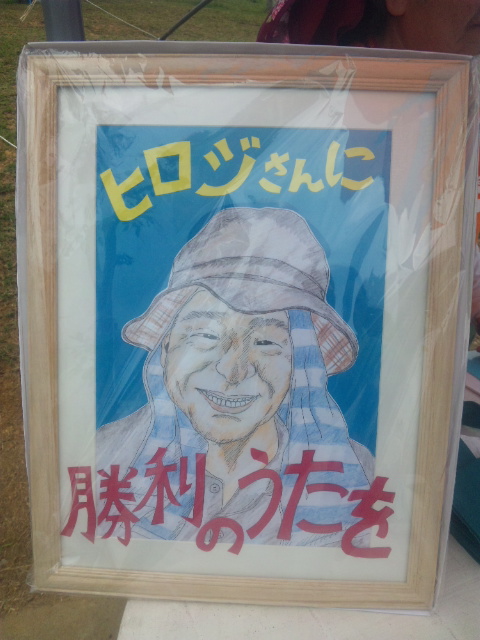 ヒロジさんに
勝利のうたを